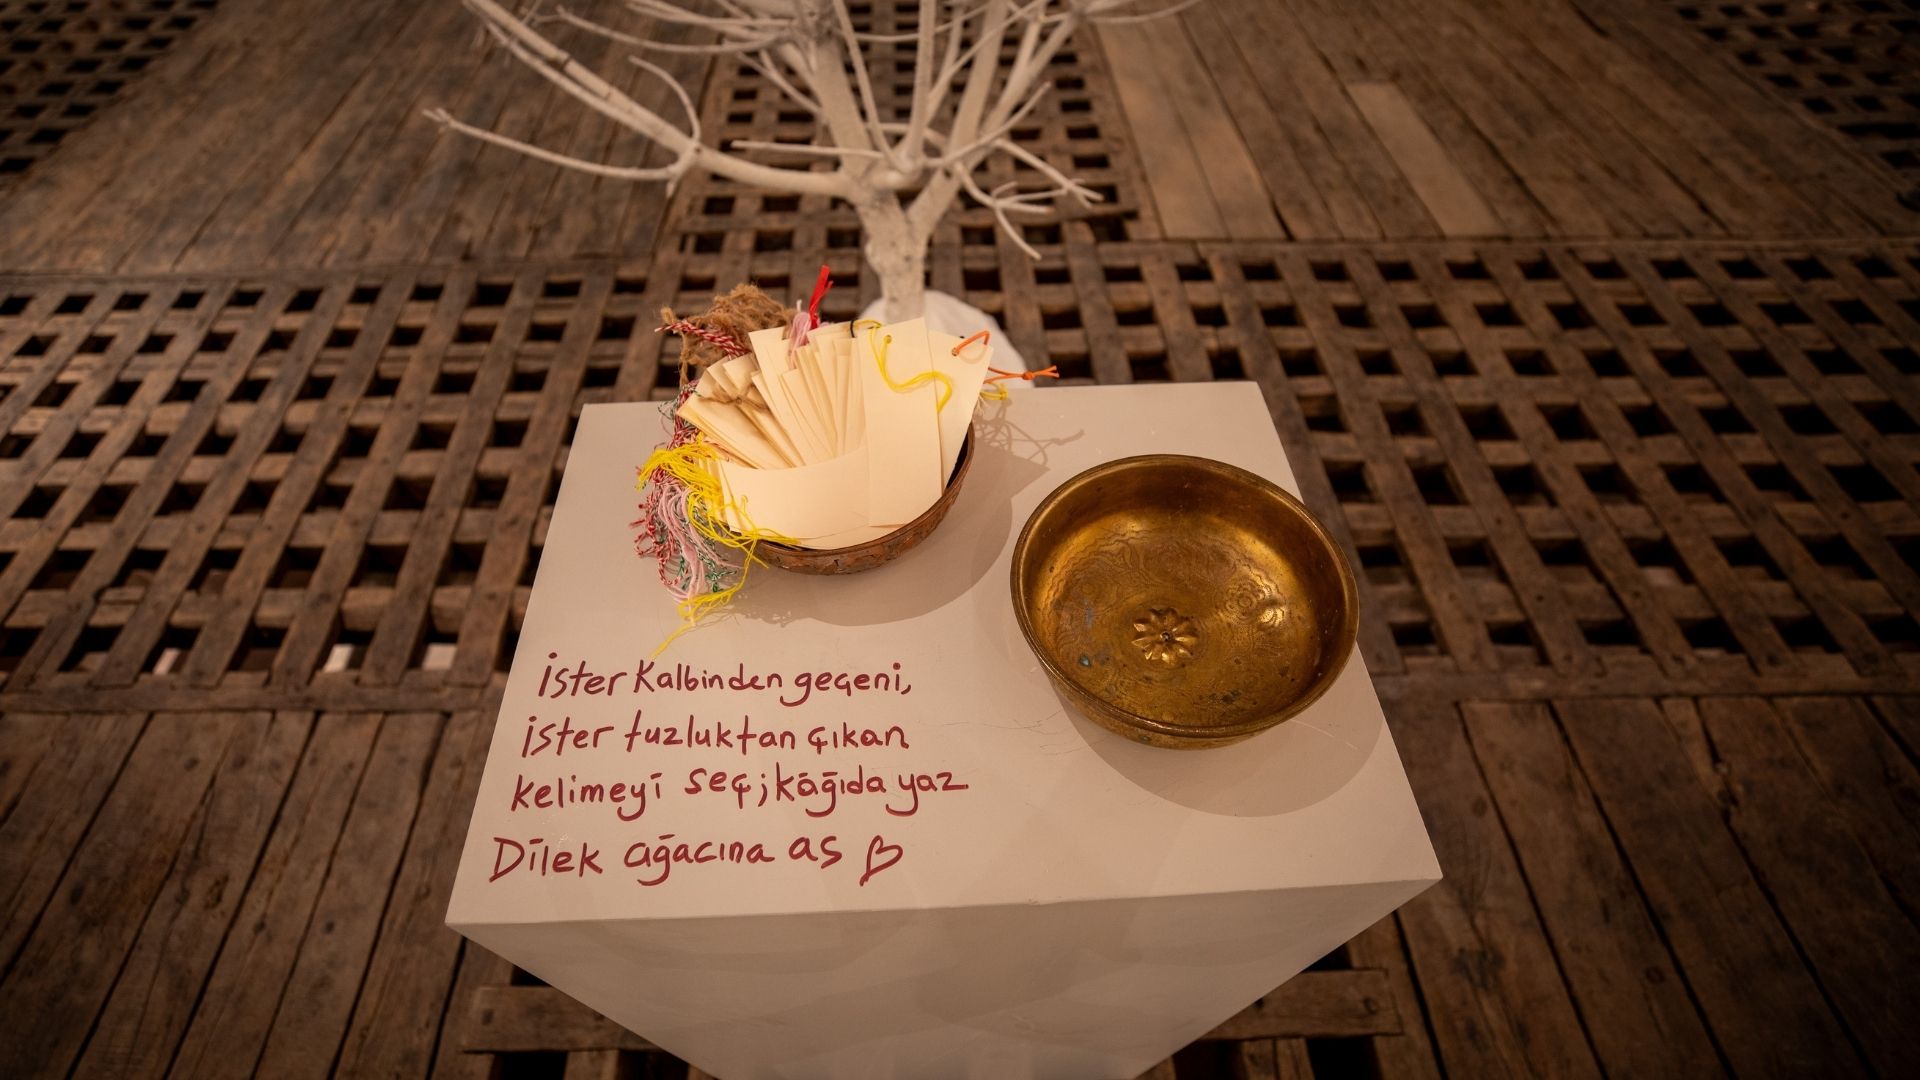 ister Kalbinden geçeni,
ister tuzluktan çıkan
kelimeyi seç; kâğıda yaz
Dilek ağacına as